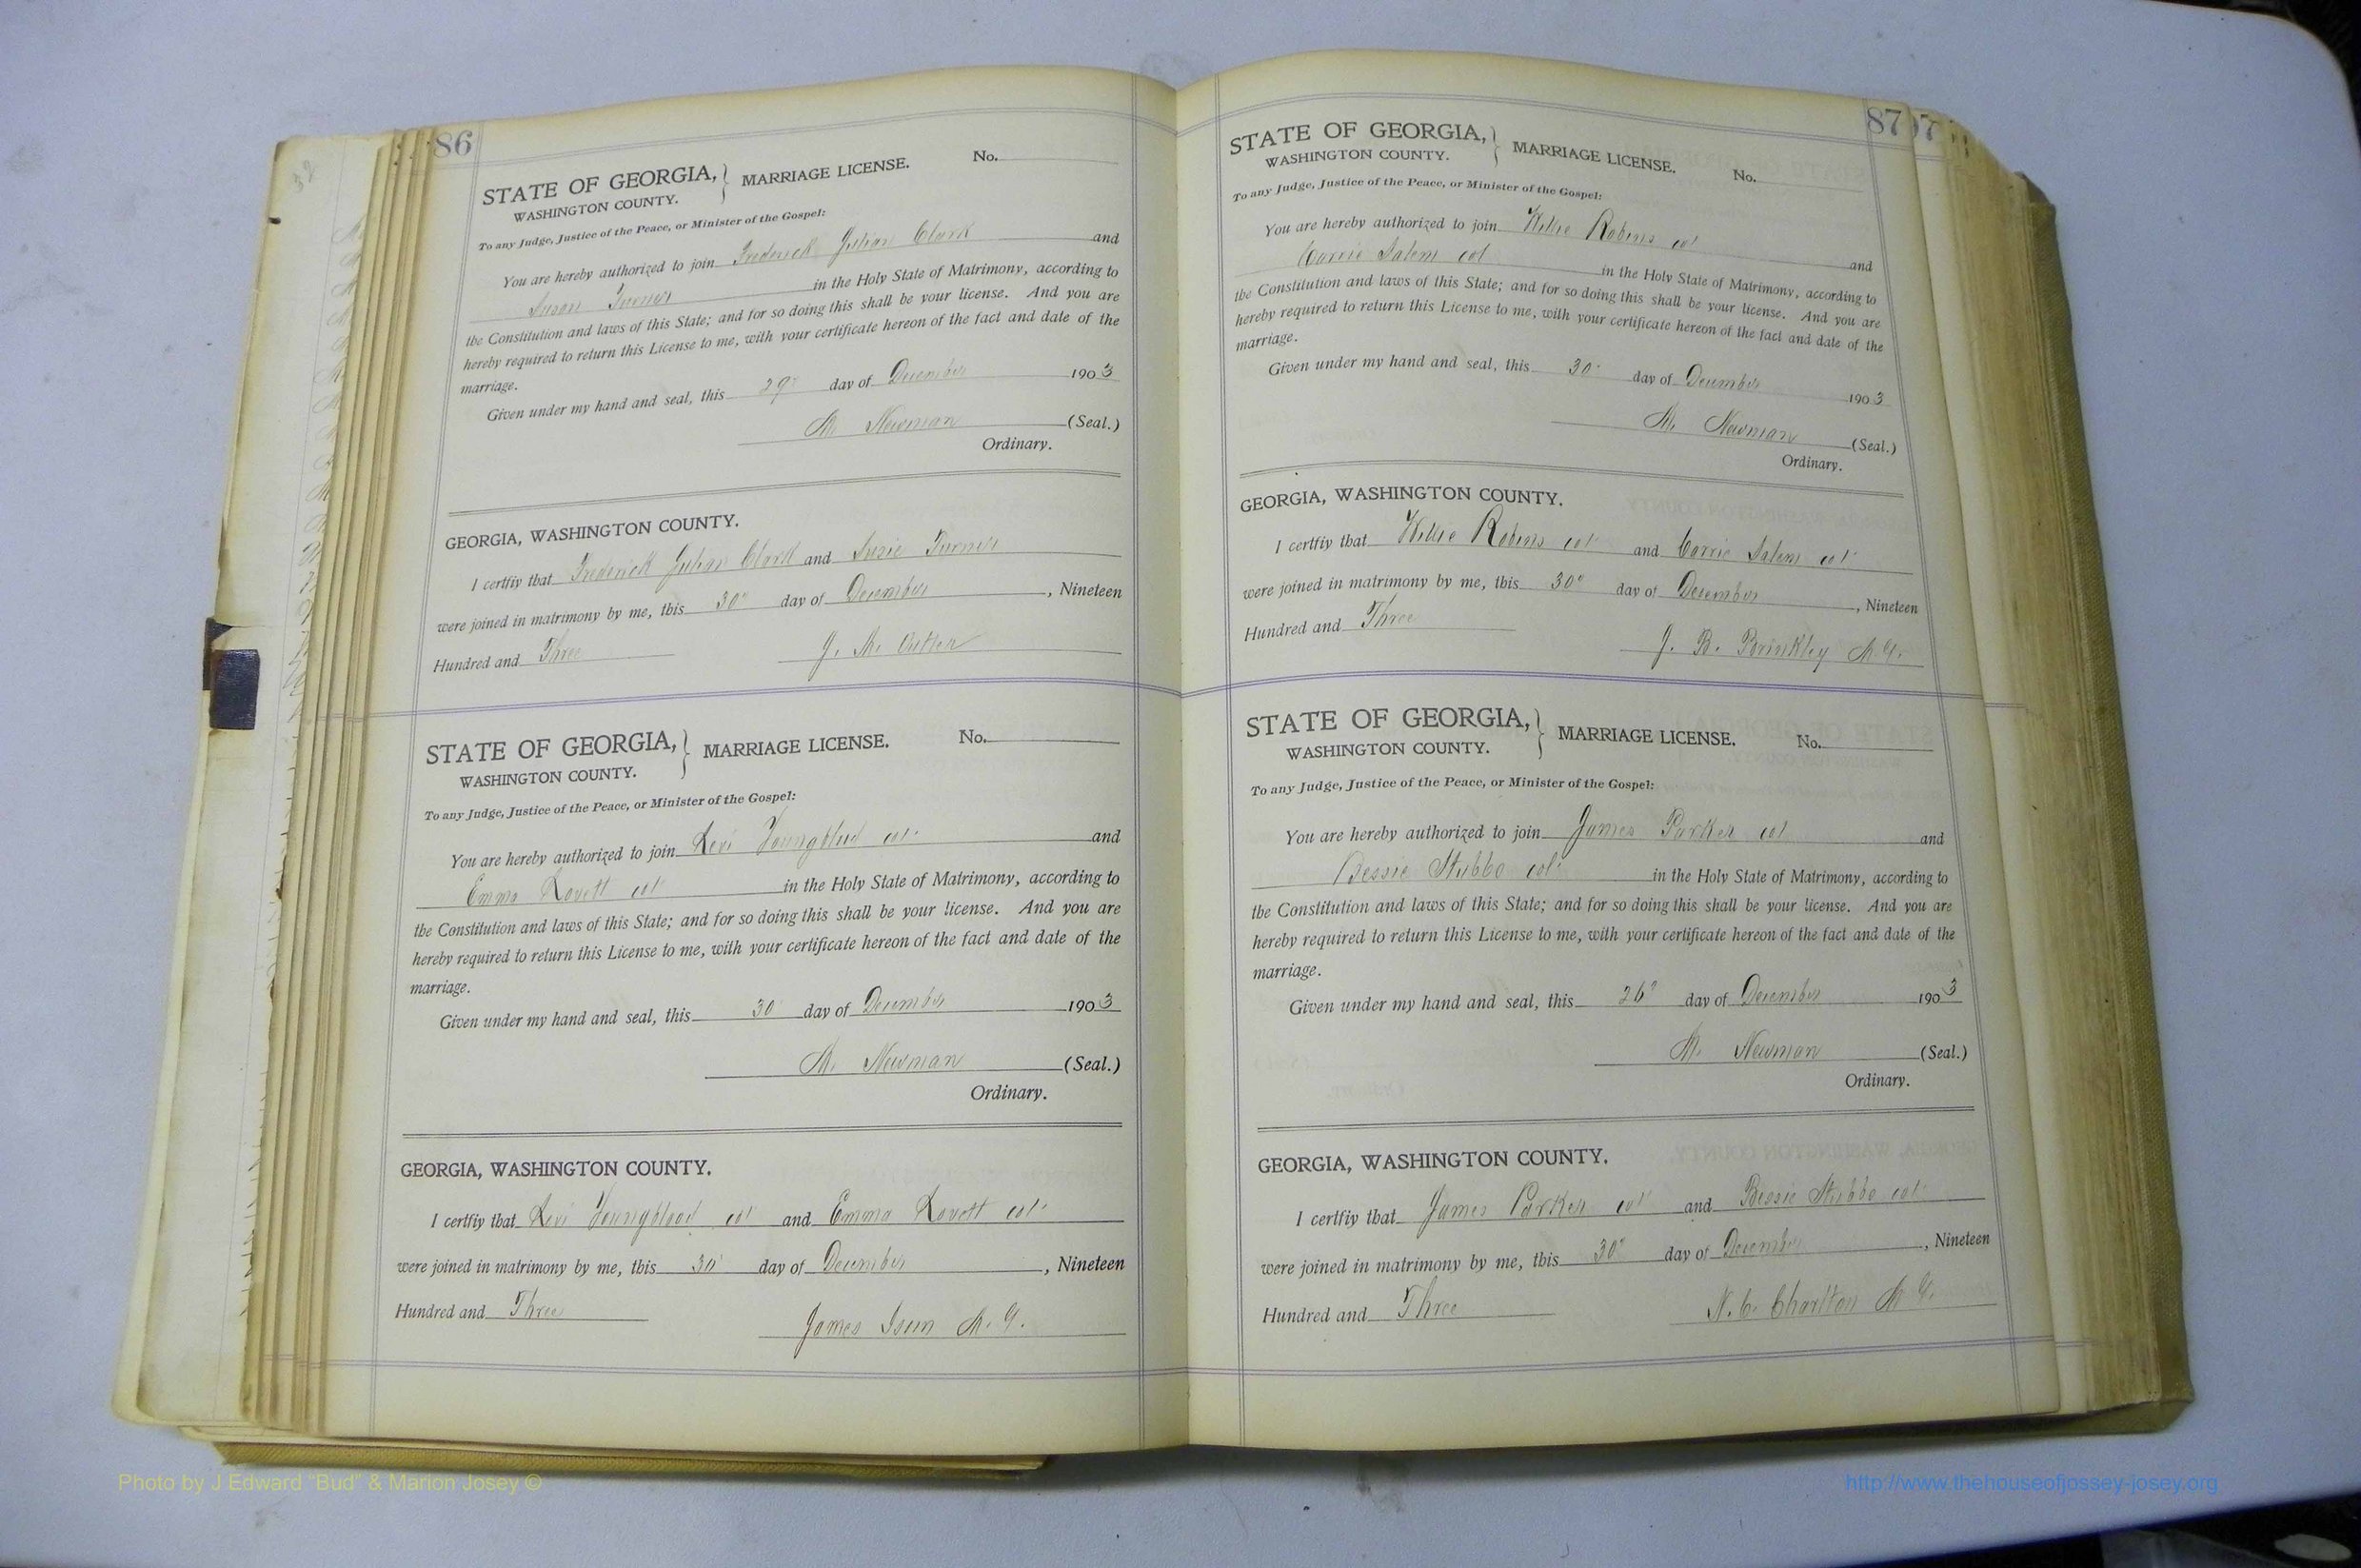 86
STATE OF GEORGIA, } MARRIAGE LICENSE. No.
WASHINGTON COUNTY.
To any Judge, Justice of the Peace, or Minister of the Gospel:
You are hereby authorized to join Frederick Julian Clark and
Susan Turner in the Holy State of Matrimony, according to
the Constitution and laws of this State; and for so doing this shall be your license. And you are
hereby required to return this License to me, with your certificate hereon of the fact and date of the
marriage.
Given under my hand and seal, this 29" day of December 1903
M. Newman (Seal.)
Ordinary.
GEORGIA, WASHINGTON COUNTY.
I certfiy that Frederick Julian Clark and Susie Turner
were joined in matrimony by me, this 30" day of December, Nineteen
Hundred and Three J. M.
STATE OF GEORGIA, } MARRIAGE LICENSE. No.
WASHINGTON COUNTY.
To any Judge, Justice of the Peace, or Minister of the Gospel:
You are hereby authorized to join Levi Youngblood col and
Emma Lovett col in the Holy State of Matrimony, according to
the Constitution and laws of this State; and for so doing this shall be your license. And you are
hereby required to return this License to me, with your certificate hereon of the fact and date of the
marriage.
Given under my hand and seal, this 30 day of December 1903
M. Newman (Seal.)
Ordinary.
GEORGIA, WASHINGTON COUNTY.
I certfiy that Levi Youngblood col and Emma Lovett col
were joined in matrimony by me, this 30 day of December, Nineteen
Hundred and Three James Isum M.G.
87
STATE OF GEORGIA, } MARRIAGE LICENSE. No.
WASHINGTON COUNTY.
To any Judge, Justice of the Peace, or Minister of the Gospel:
You are hereby authorized to join Willie Robins col
Carrie Salem col and
in the Holy State of Matrimony, according to
the Constitution and laws of this State; and for so doing this shall be your license. And you are
hereby required to return this License to me, with your certificate hereon of the fact and date of the
marriage.
Given under my hand and seal, this 30 day of December 1903
M. Newman (Seal.)
Ordinary.
GEORGIA, WASHINGTON COUNTY.
I certfiy that Willie Robins col and Carrie Salem col
were joined in matrimony by me, this 30" day of December, Nineteen
Hundred and Three J. B. Brinkley M.G.
STATE OF GEORGIA, } MARRIAGE LICENSE. No.
WASHINGTON COUNTY.
To any Judge, Justice of the Peace, or Minister of the Gospel:
You are hereby authorized to join James Parker col and
Bessie Stubbs col in the Holy State of Matrimony, according to
the Constitution and laws of this State; and for so doing this shall be your license. And you are
hereby required to return this License to me, with your certificate hereon of the fact and date of the
marriage.
Given under my hand and seal, this 26" day of December 1903
M. Newman (Seal.)
Ordinary.
GEORGIA, WASHINGTON COUNTY.
I certfiy that James Parker col and Bessie Stubbs col
were joined in matrimony by me, this 30" day of December, Nineteen
Hundred and Three N. C. Charlton M.G.
Photo by J Edward "Bud" & Marion Josey ©
http://www.thehouseofjossey-josey.org